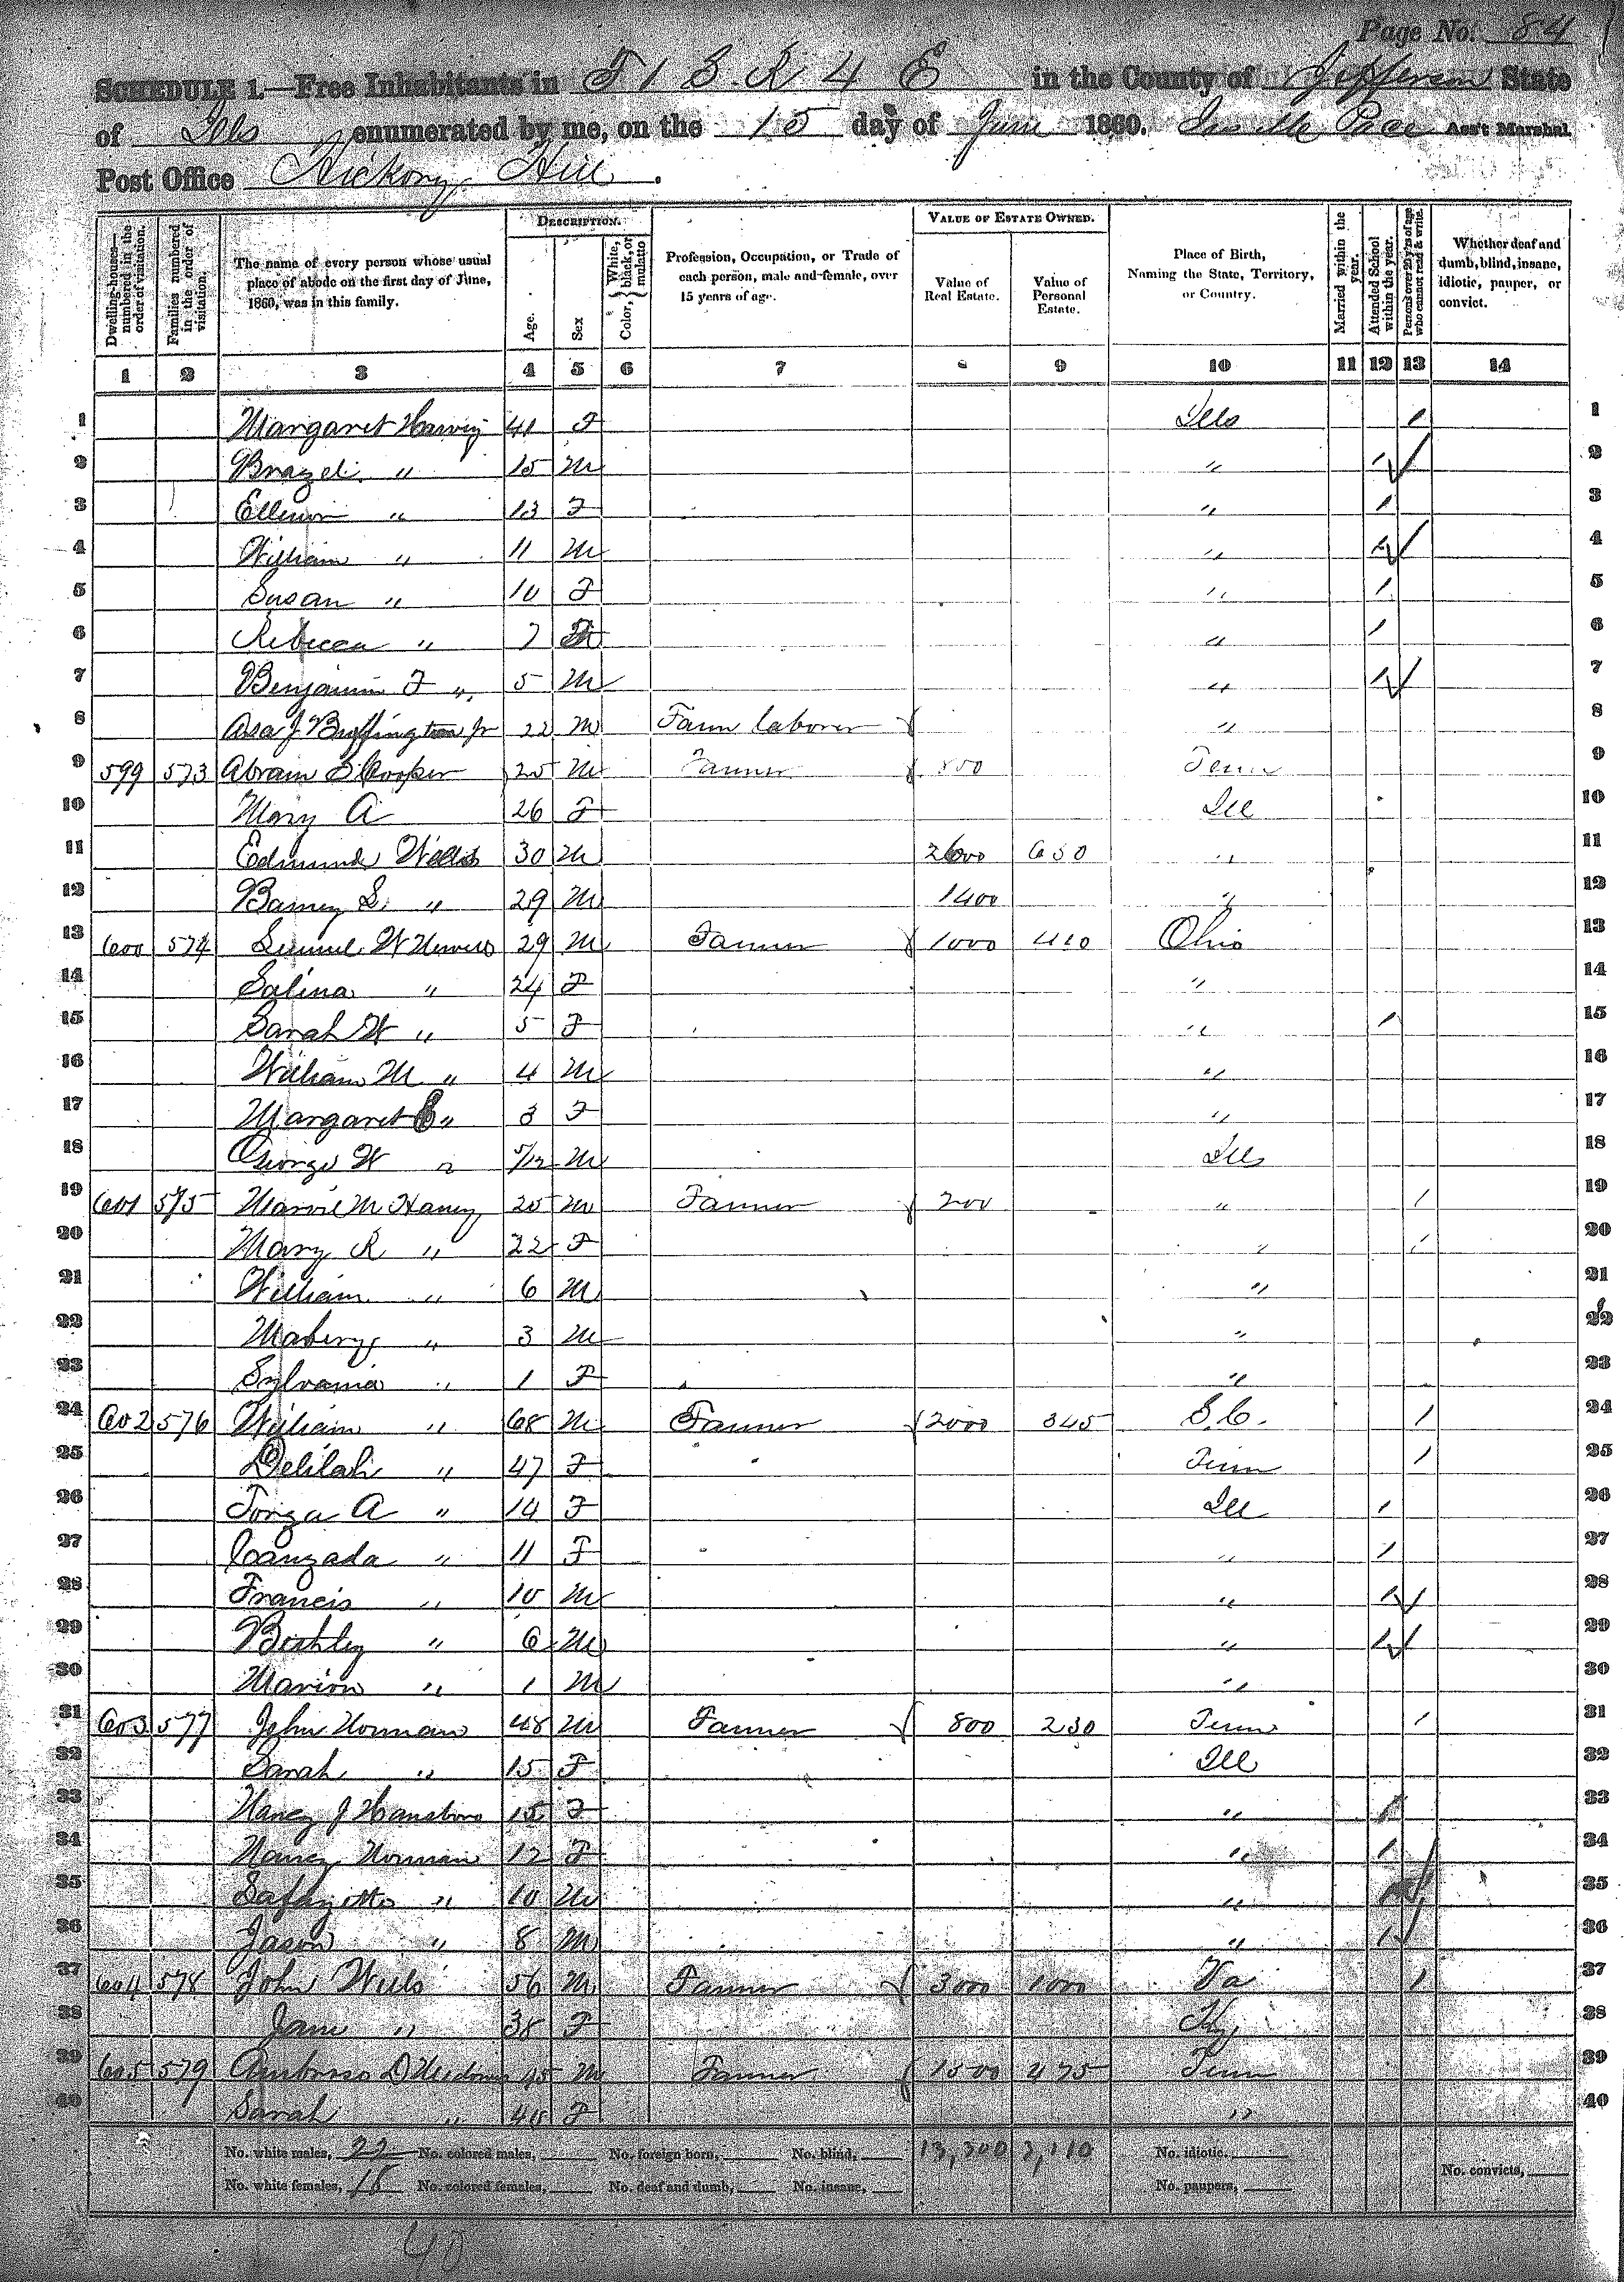 Page No. 84
SCHEDULE 1.—Free Inhabitants in T 1 S. R 4 E in the County of Jefferson State
of Ills enumerated by me, on the 15 day of June 1860. Pace Ass't Marshal.
Post Office Hickory Hill.
DESCRIPTION. VALUE OF ESTATE OWNED.
Dwelling-houses—numbered in the order of visitation. Families numbered in the order of visitation. The name of every person whose usual place of abode on the first day of June, 1860, was in this family. Age. Sex Color, { White, black, or mulatto Profession, Occupation, or Trade of each person, male and female, over 15 years of age. Value of Real Estate. Value of Personal Estate. Place of Birth, Naming the State, Territory, or Country. Married within the year. Attended School within the year. Persons over 20 y'rs of age who cannot read & write. Whether deaf and dumb, blind, insane, idiotic, pauper, or convict.
1 2 3 4 5 6 7 8 9 10 11 12 13 14
1 Margaret 41 F Ills / 1
2 Brazel " 15 M " / 2
3 " 13 F " / 3
4 William " 11 M " / 4
5 Susan " 10 F " / 5
6 Rebecca " 7 " / 6
7 Benjamin F " 5 M " / 7
8 Asa J Buffington Jr 22 M Farm laborer " 8
9 599 573 Abram Cooper 25 M Farmer 800 Tenn 9
10 Mary A 26 F Ill 10
11 Edmund 30 M 650 " 11
12 Barney S. " 29 M 1400 " 12
13 600 574 W 29 M Farmer 1000 410 Ohio 13
14 Salina " 24 F " 14
15 Sarah W " 5 F " / 15
16 William M " 4 M " 16
17 Margaret " 3 F " 17
18 George W " 5/12 M Ills 18
19 601 575 M Haney 25 M Farmer 200 " / 19
20 Mary R " 22 F " / 20
21 William " 6 M " 21
22 Mabery " 3 M " 22
23 Sylvania " 1 F " 23
24 602 576 William " 68 M Farmer 2000 345 S.C. / 24
25 Delilah " 47 F Tenn / 25
26 A " 14 F Ill / 26
27 Canzada " 11 F " / 27
28 Francis " 10 M " / 28
29 " 6 M " / 29
30 Marion " 1 M " 30
31 603 577 John Norman 48 M Farmer 800 230 Tenn / 31
32 Sarah " 15 F Ill 32
33 Nancy J Hansboro 15 F " / 33
34 Nancy Norman 12 F " / 34
35 Lafayette " 10 M " / 35
36 Jason " 8 M " / 36
37 604 578 John Wells 56 M Farmer 3000 1000 Va / 37
38 Jane " 38 F Ky 38
39 605 579 Ambrose D 45 M Farmer 1500 475 Tenn 39
40 Sarah " F " 40
No. white males, 22 No. colored males, No. foreign born, No. blind, 13,300 No. idiotic.
No. white females, 18 No. colored females, No. deaf and dumb, No. insane, No. paupers, No. convicts,
40